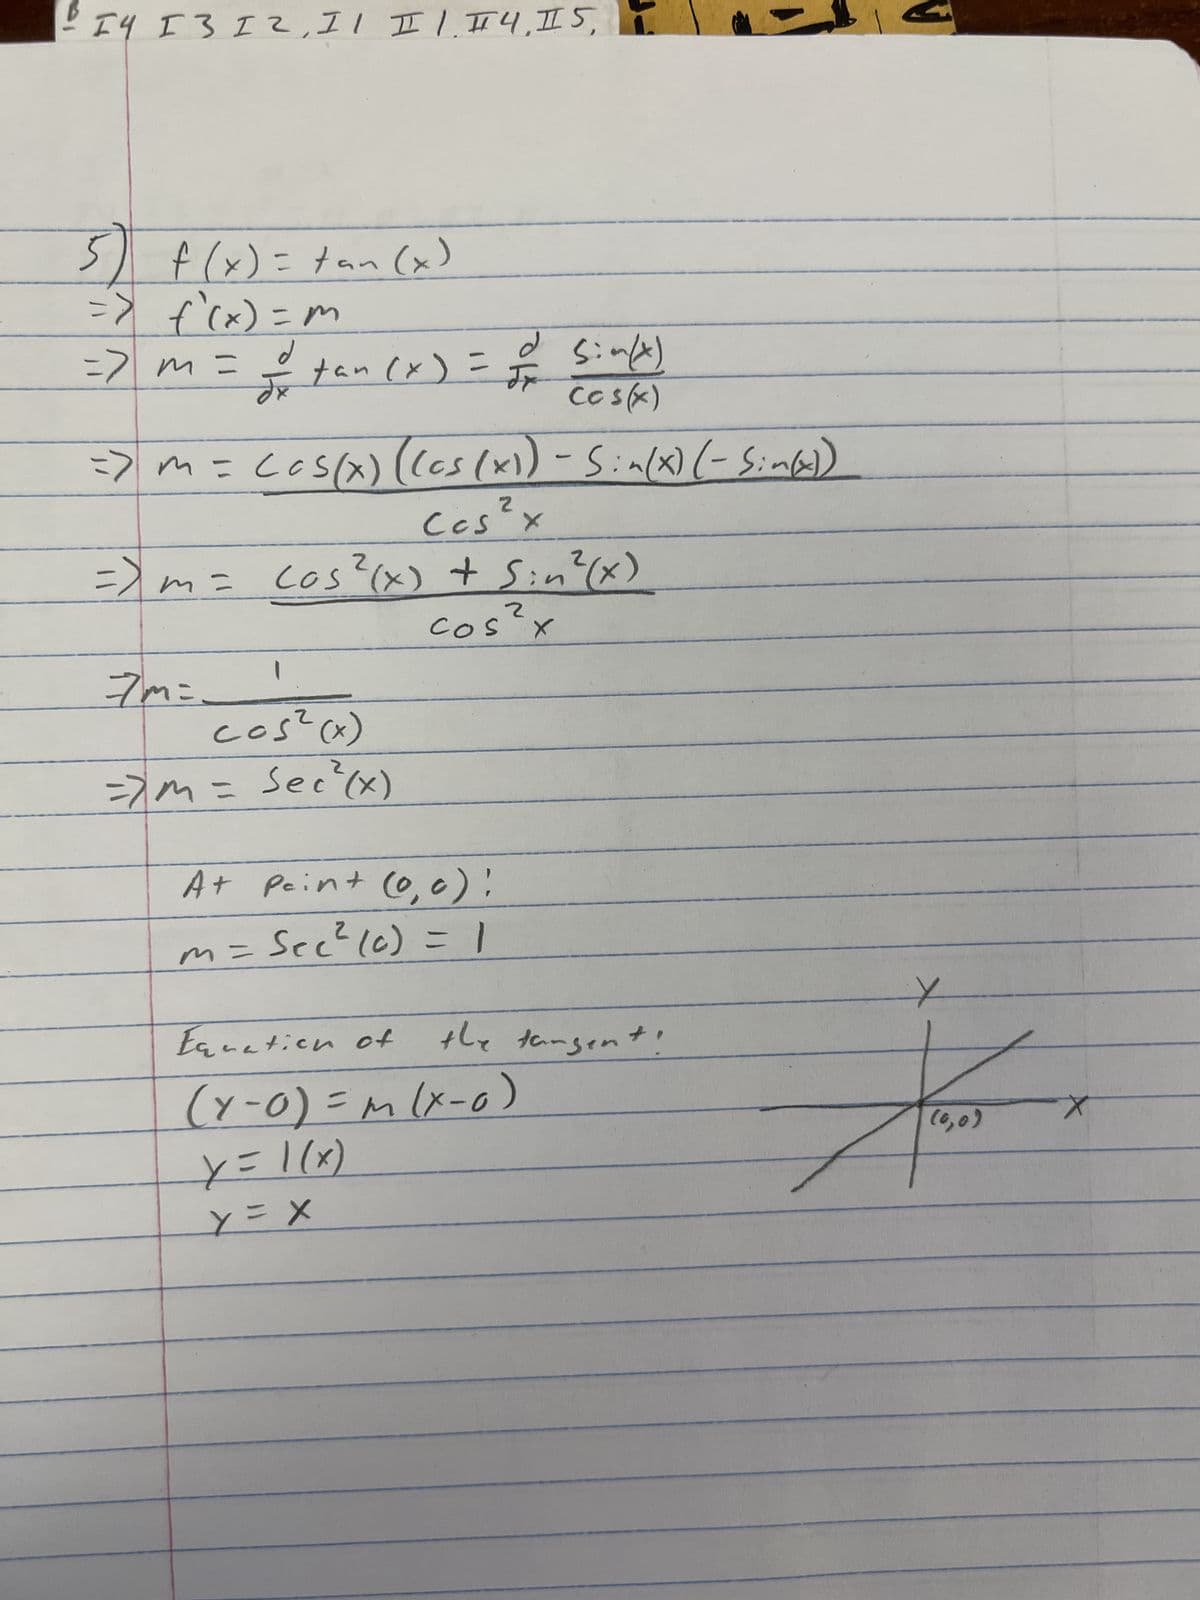 I4 I3 I2, I1 II1. II4, II5,
5) f(x) = tan(x)
=> f'(x) = m
=> m = d/dx tan(x) = d/dx sin(x)/cos(x)
=> m = cos(x)((cos(x)) - sin(x)(-sin(x))
cos²x
=> m = cos²(x) + sin²(x)
cos²x
=> m = 1
cos²(x)
=> m = sec²(x)
At point (0,0):
m = sec²(0) = 1
Equation of the tangent:
(y-0) = m(x-0)
y = 1(x)
y = x
y
(0,0)
x